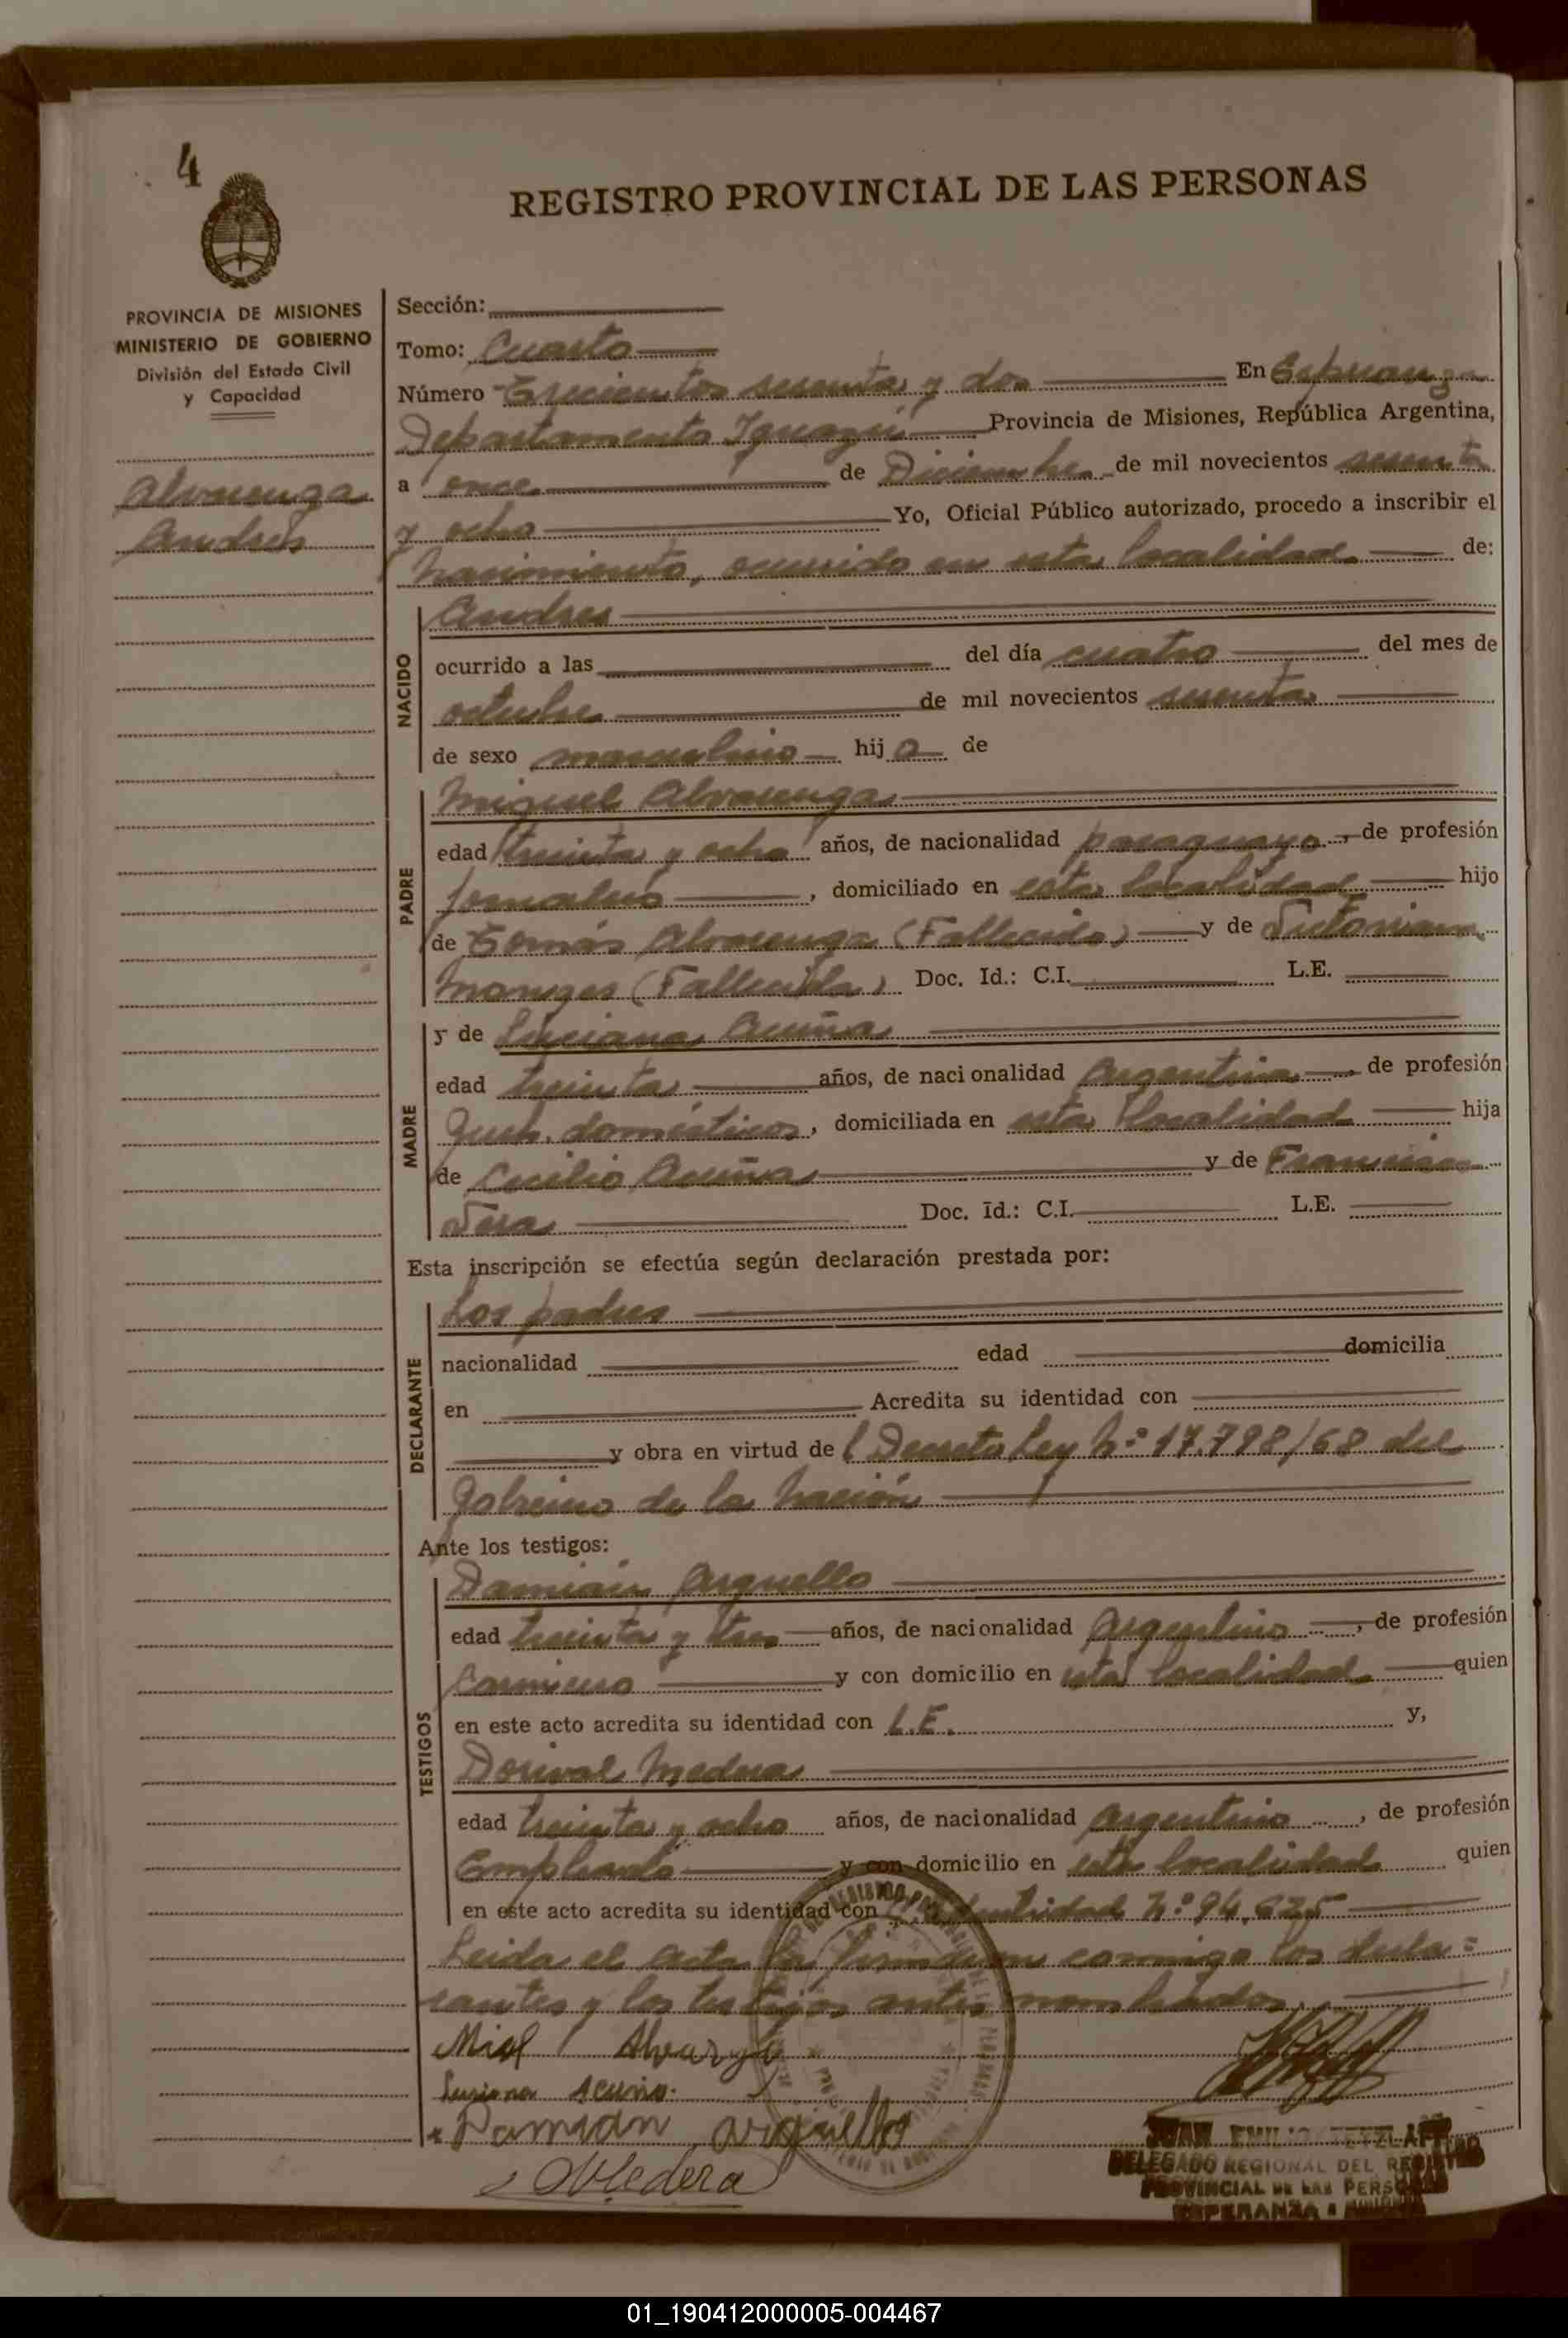 4
REGISTRO PROVINCIAL DE LAS PERSONAS
PROVINCIA DE MISIONES
MINISTERIO DE GOBIERNO
División del Estado Civil
y Capacidad
Alvarenga
Andrés
Sección:
Tomo: Cuarto
Número Trecientos sesenta y dos En Esperanza
Departamento Iguazú Provincia de Misiones, República Argentina,
a once de Diciembre de mil novecientos sesenta
y ocho Yo, Oficial Público autorizado, procedo a inscribir el
Nacimiento, ocurrido en esta localidad de:
NACIDO
Andres
ocurrido a las del día cuatro del mes de
octubre de mil novecientos sesenta
de sexo masculino hijo de
PADRE
Miguel Alvarenga
edad treinta y ocho años, de nacionalidad paraguayo, de profesión
Jornalero, domiciliado en esta localidad hijo
de Tomás Alvarenga (Fallecido) y de
(Fallecida) Doc. Id.: C.I. L.E.
MADRE
y de Luciana Acuña
edad treinta años, de nacionalidad Argentina, de profesión
Queh. domésticos, domiciliada en esta localidad hija
de Acuña y de Francisca
Doc. Id.: C.I. L.E.
Esta inscripción se efectúa según declaración prestada por:
DECLARANTE
Los padres
nacionalidad edad domicilia
en Acredita su identidad con
y obra en virtud del Decreto Ley Nº 17.798/68 del
Gobierno de la Nación
Ante los testigos:
TESTIGOS
Damián Arguello
edad treinta y tres años, de nacionalidad Argentino, de profesión
Carnicero y con domicilio en esta localidad quien
en este acto acredita su identidad con L.E. y,
Dorival Medera
edad treinta y ocho años, de nacionalidad Argentino, de profesión
Empleado y con domicilio en esta localidad quien
en este acto acredita su identidad con Identidad Nº 94.625
Leida el acta la firmaron conmigo los decla=
rantes y los testigos antes nombrados.
Alvarenga
Luciana Acuña.
Damian Arguello
Medera
JUAN EMILIO TETZLAFF
DELEGADO REGIONAL DEL REGISTRO
PROVINCIAL DE LAS PERSONAS
ESPERANZA - MISIONES
01_190412000005-004467